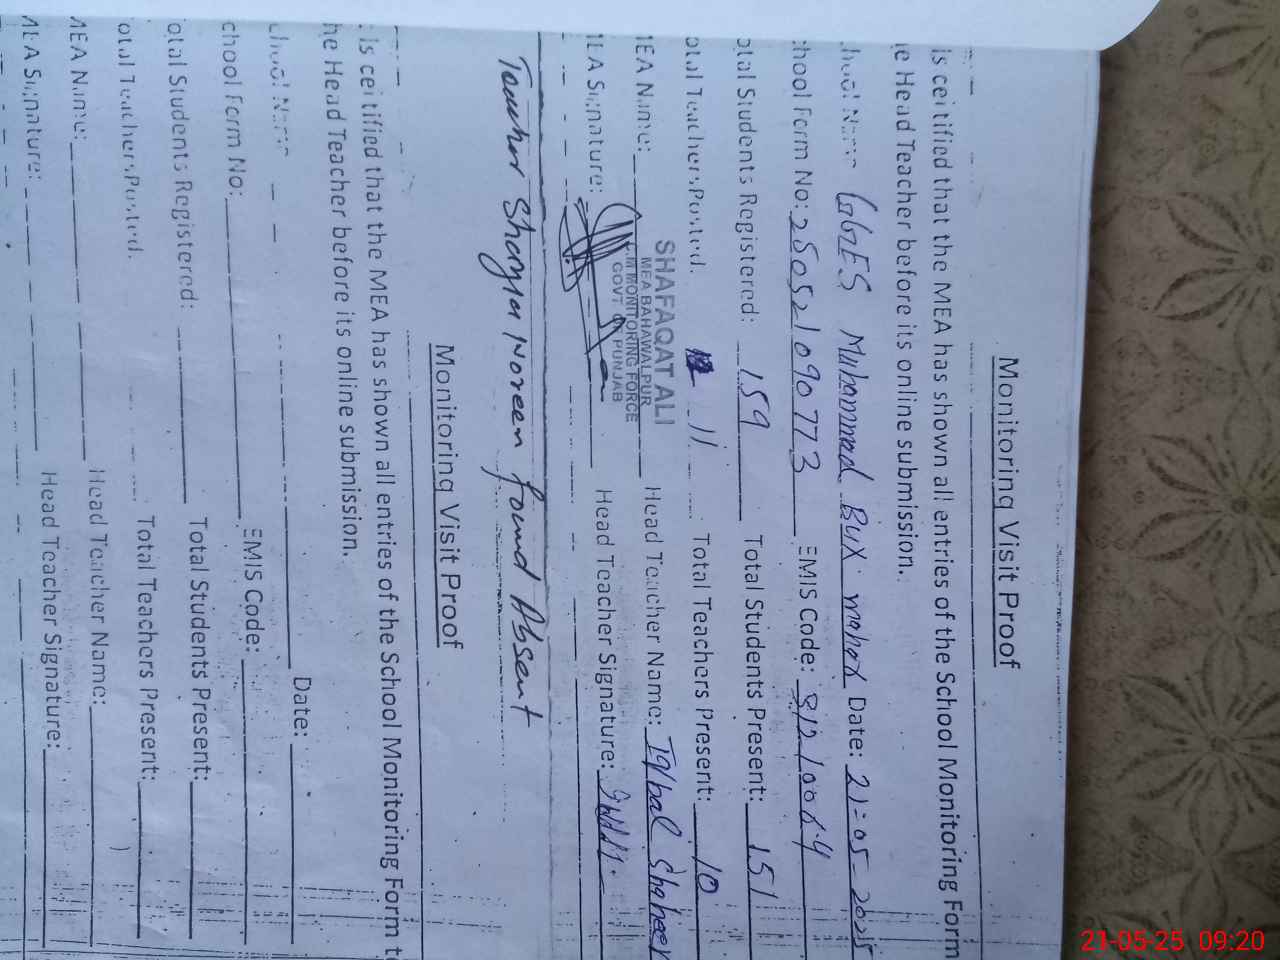 Monitoring Visit Proof
is certified that the MEA has shown all entries of the School Monitoring Form
e Head Teacher before its online submission.
GGES Muhammad Bux mohar Date: 21-05-2025
chool Form No: 250521090773 EMIS Code: 31210064
otal Students Registered: 159 Total Students Present: 151
otal Teachers Posted. 11 Total Teachers Present: 10
MEA Name: SHAFAQAT ALI Head Teacher Name: Iqbal Shaheen
MEA BAHAWALPUR
MONITORING FORCE
GOVT OF PUNJAB
MEA Signature: Head Teacher Signature:
Teacher Shazia Noreen found Absent
Monitoring Visit Proof
is certified that the MEA has shown all entries of the School Monitoring Form t
he Head Teacher before its online submission.
chool Name Date:
chool Form No: EMIS Code:
otal Students Registered: Total Students Present:
otal Teachers Posted. Total Teachers Present:
MEA Name: Head Teacher Name:
MEA Signature: Head Teacher Signature:
21-05-25 09:20